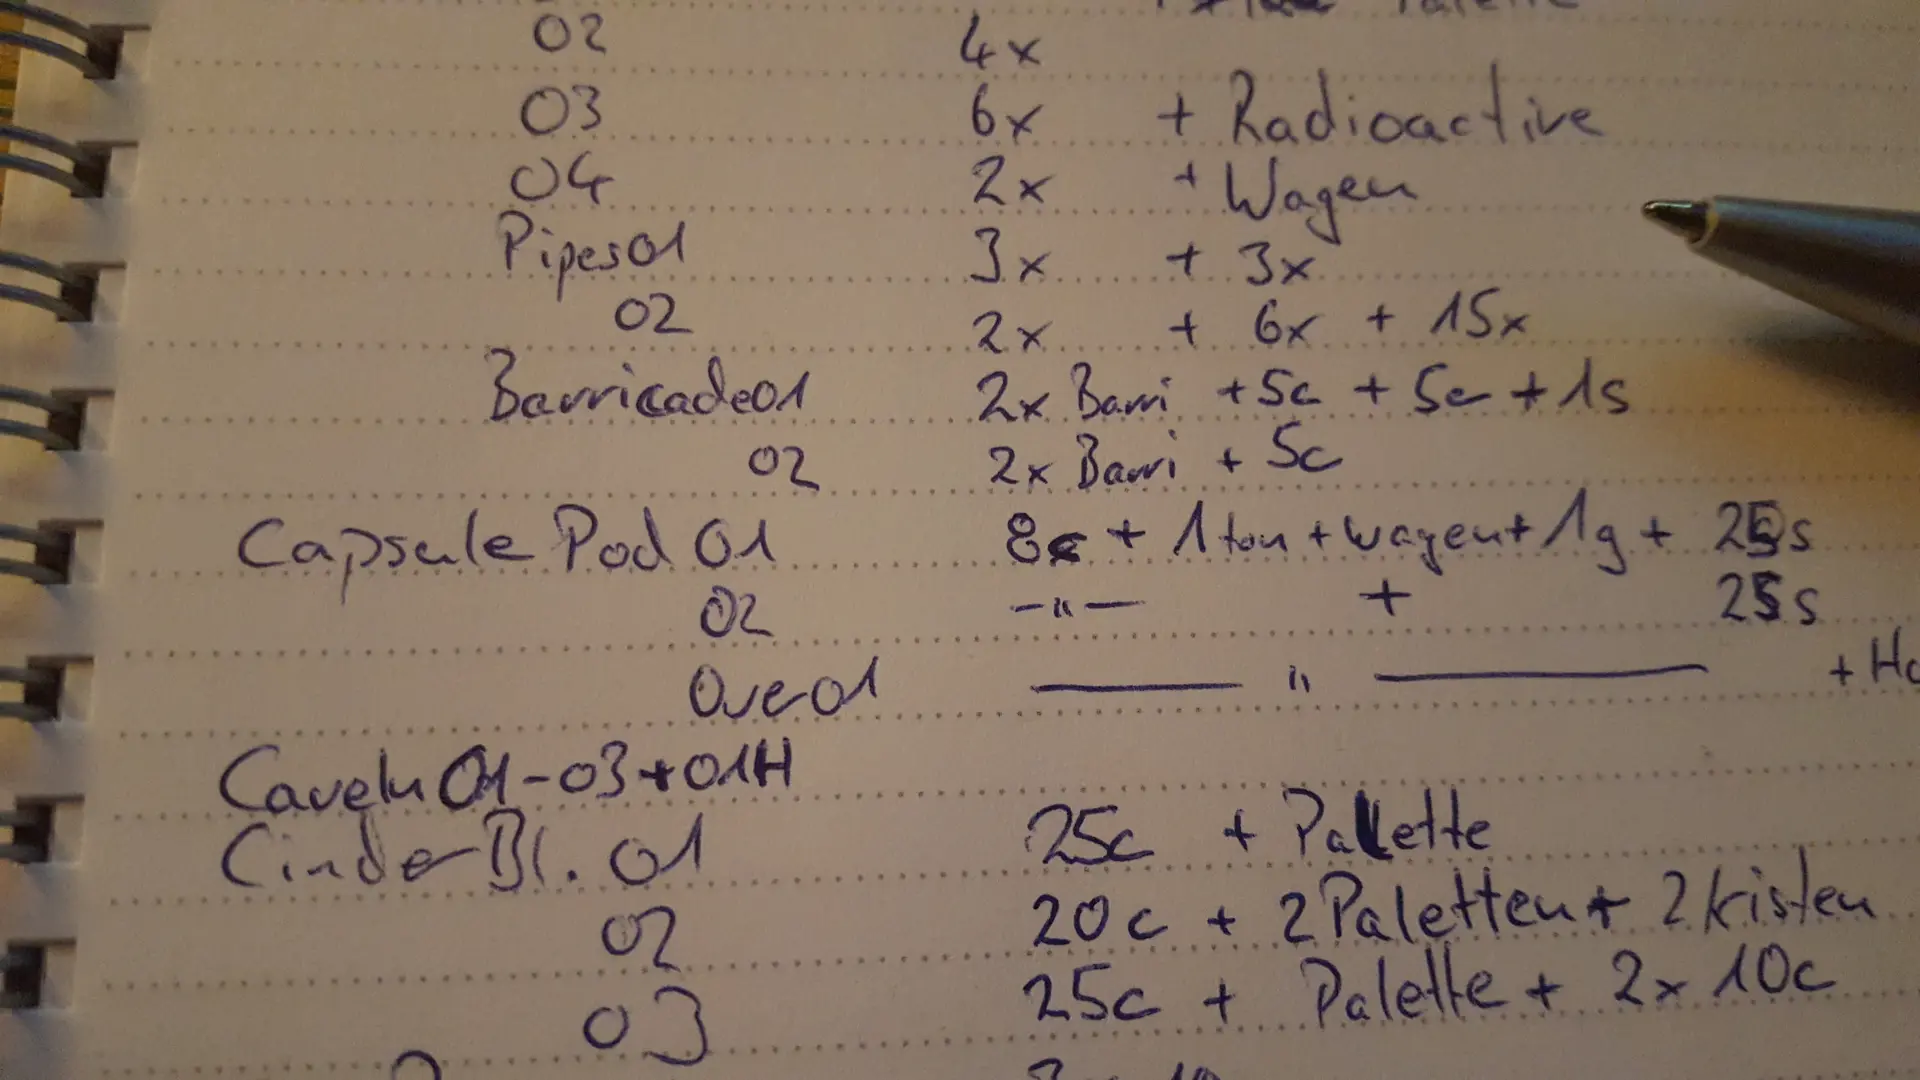 Palette
02 4x
03 6x + Radioactive
04 2x + Wagen
Pipes01 3x + 3x
02 2x + 6x + 15x
Barricade01 2x Barri + 5c + 5c + 1s
02 2x Barri + 5c
Capsule Pod 01 8c + 1 ton + wagen + 1g + 25s
02 —"— + 25s
Over01 ——— " ——— + Ha
01-03+01H
Cinder Bl. 01 25c + Palette
02 20c + 2 Paletten + 2 kisten
03 25c + Palette + 2x 10c